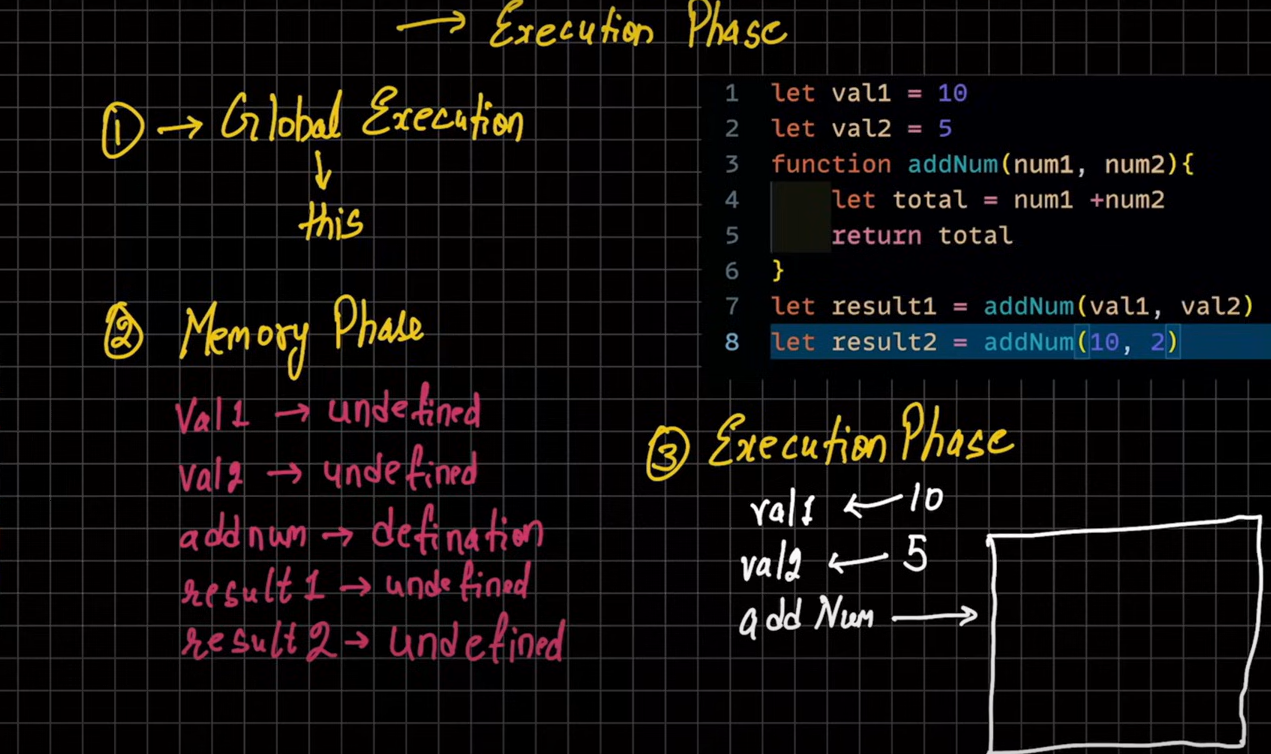 → Execution Phase
① → Global Execution
↓
this
② Memory Phase
Val1 → undefined
val2 → undefined
addnum → defination
result1 → undefined
result2 → undefined
1 let val1 = 10
2 let val2 = 5
3 function addNum(num1, num2){
4 let total = num1 +num2
5 return total
6 }
7 let result1 = addNum(val1, val2)
8 let result2 = addNum(10, 2)
③ Execution Phase
val1 ← 10
val2 ← 5
addNum →